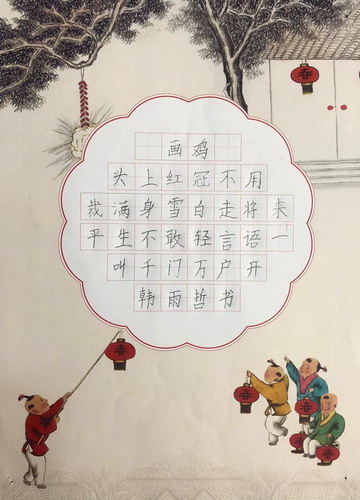 画鸡
头上红冠不用
裁满身雪白走将来
平生不敢轻言语一
叫千门万户开
韩雨哲书
春
春
春
春